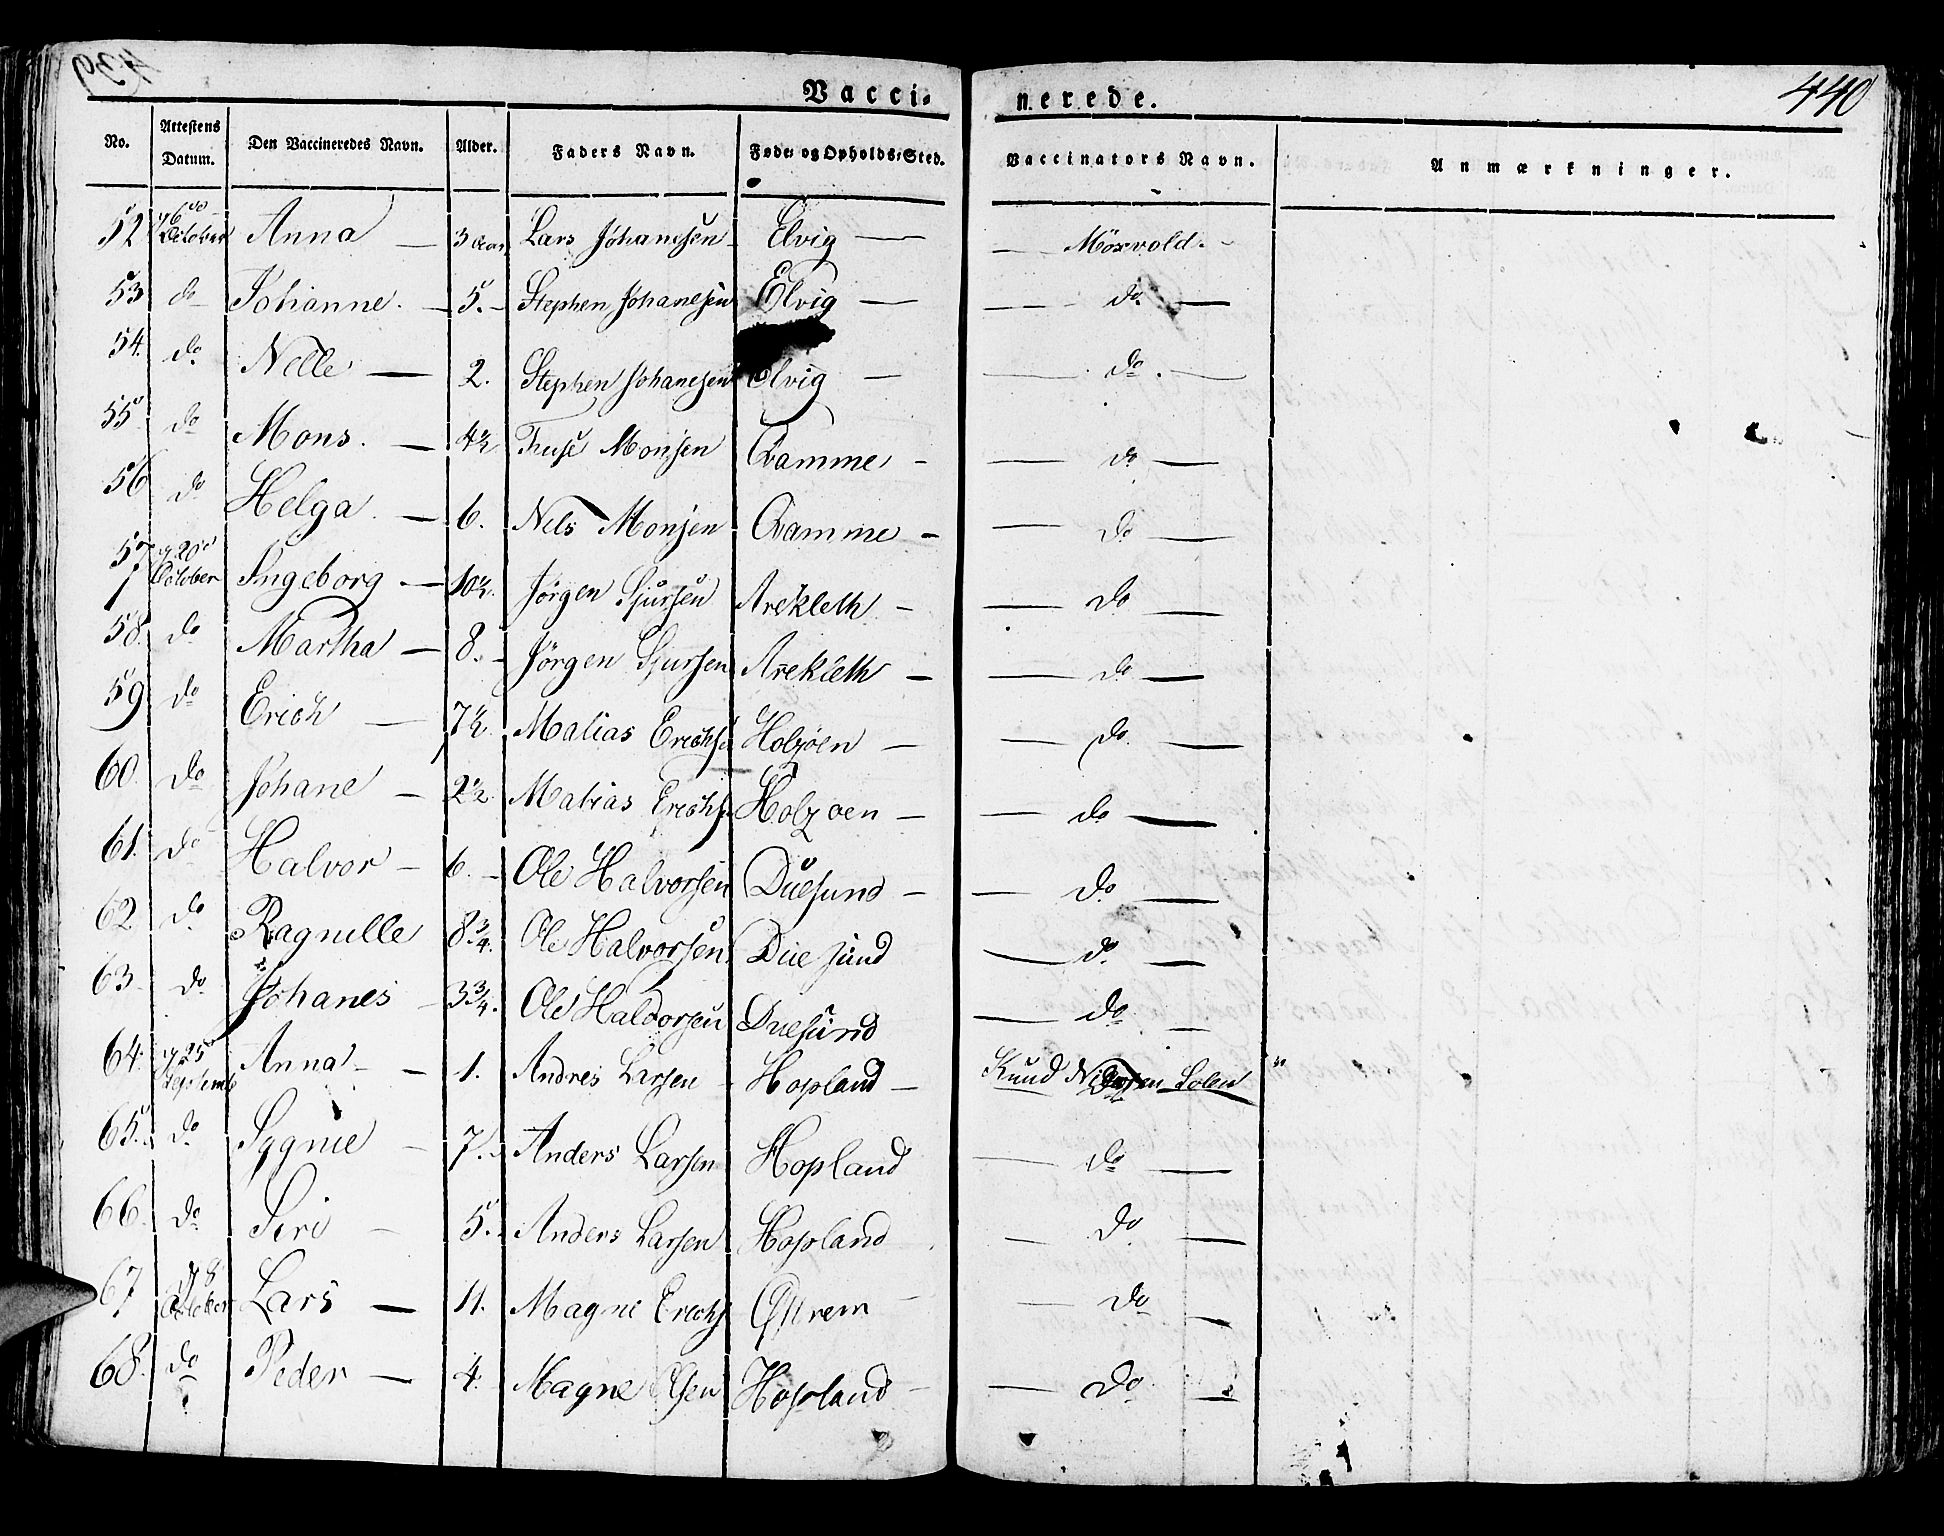 439
Vacci-nerede.
440
No. Attestens Datum. Den Vaccineredes Navn. Alder. Faders Navn. Føde- og Opholds-Sted. Vaccinators Navn. Anmærkninger.
52 October Anna — 3 Aar Lars Johanesen Elvig — — Mösevold. -
53 do Johanne. — 5. - Stephen Johanesen Elvig — — do —
54. do Nelle — 2. Stephen Johanesen Elvig — — do. —
55 do Mons. — 4½ Monsen Qvamme - — do —
56 do Helga. — 6. Nels Monsen Qvamme - — do —
57 20 October Ingeborg — 10½. Jörgen Sjursen Arekleth - — do —
58. do Martha — 8. - Jörgen Sjursen Arekleth — — do —
59 do Erich — 7½. Matias Erichs Holzöen — — do. —
60. do Johane — 2½ Matias Erichs Holzoen — — do —
61. do Halvor — 6. - Ole Halvorsen Duesund - — do —
62 do Ragnille 8¾. Ole Halvorsen Duesund — do —
63 do Johanes - 3¾. Ole Haldorsen Duesund — do —
64. 25 Septemb Anna - 1. Andres Larsen - Hopland — Knud Solen
65. do Sygnie - 7. Anders Larsen Hopland — do —
66. do Siri - 5. Anders Larsen Hopland — do —
67 8 October Lars — 11. Magni Erichs Østrem - — do —
68. do Peder — 4. Magne Olsen Hopland - — do. —